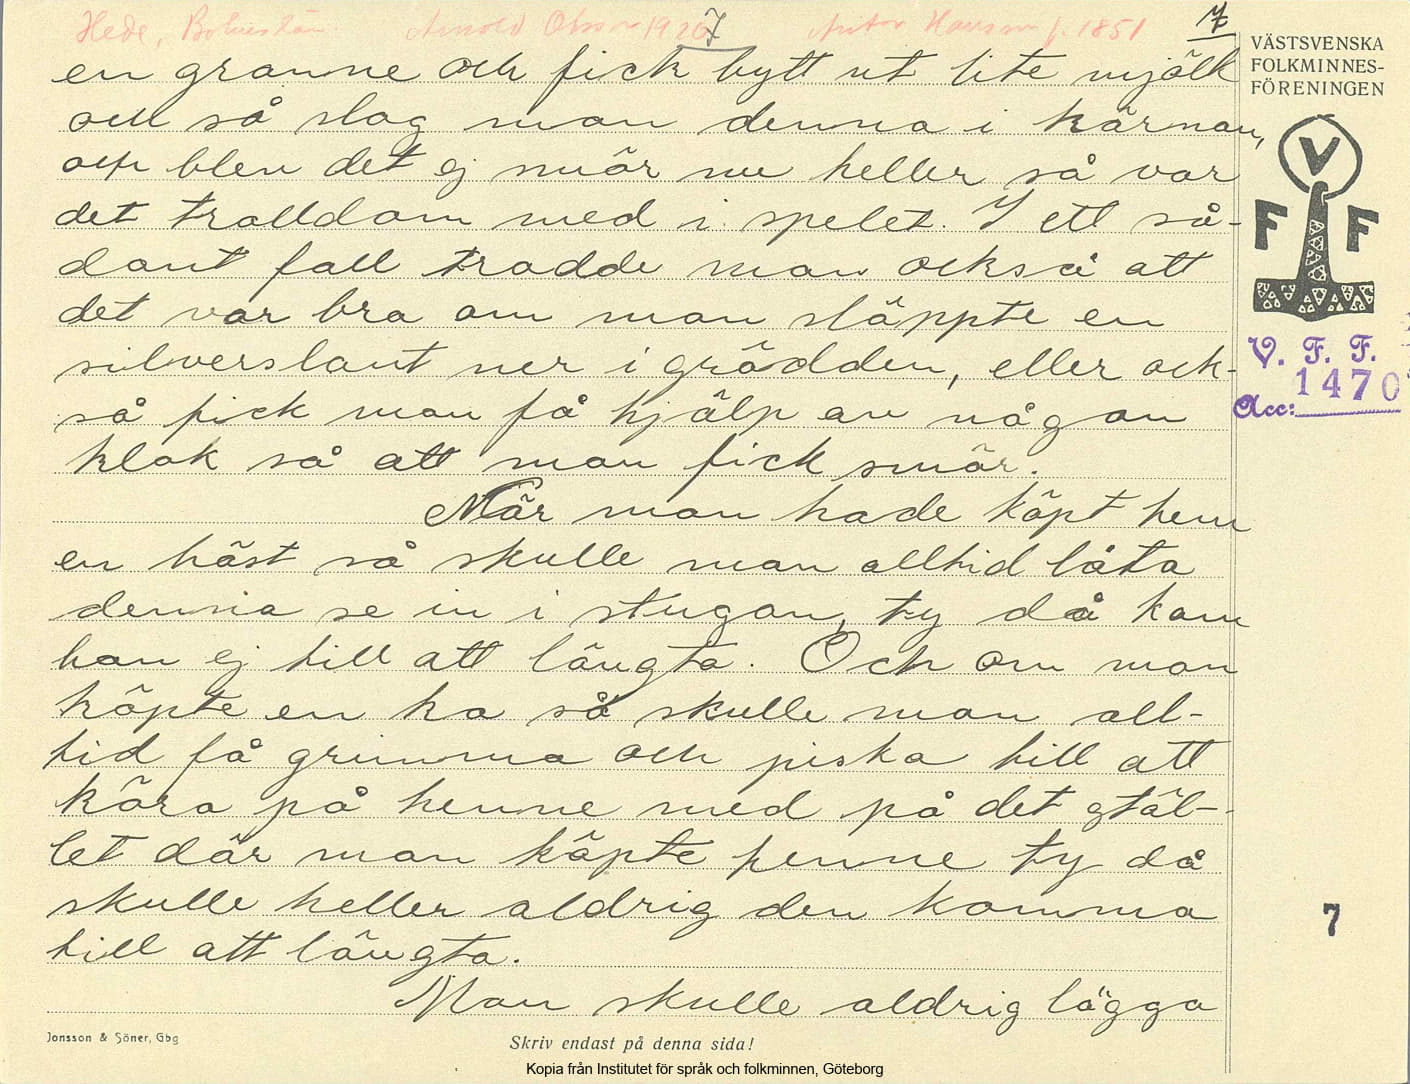 Hede, Bohuslän Arnold Olsson 1926 Anton Hansson f. 1851
7
7
en granne och fick bytt ut lite mjölk
och så slog man denna i kärnan,
och blev det ej smör nu heller så var
det trolldom med i spelet. I ett så-
dant fall trodde man också att
det var bra om man släppte en
silverslant ner i grädden, eller ock-
så fick man få hjälp av någon
klok så att man fick smör.
När man hade köpt hem
en häst så skulle man alltid låta
denna se in i stugan, ty då kom
han ej till att längta. Och om man
köpte en ko så skulle man all-
tid få grimma och piska till att
köra på henne med på det stäl-
let där man köpte henne ty då
skulle heller aldrig den komma
till att längta.
Man skulle aldrig lägga
VÄSTSVENSKA
FOLKMINNES-
FÖRENINGEN
V
F F
V. F. F.
1470
Acc:
7
Jonsson & Söner, Gbg
Skriv endast på denna sida!
Kopia från Institutet för språk och folkminnen, Göteborg